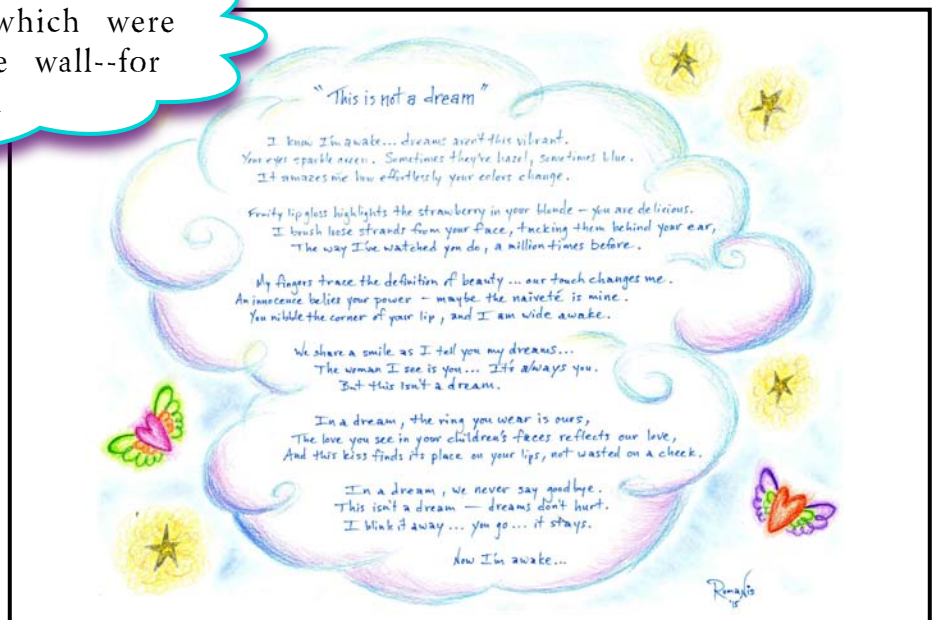 which were
wall--for
"This is not a dream"
I know I'm awake... dreams aren't this vibrant.
Your eyes sparkle green. Sometimes they're hazel, sometimes blue.
It amazes me how effortlessly your colors change.
Fruity lipgloss highlights the strawberry in your blonde – you are delicious.
I brush loose strands from your face, tucking them behind your ear,
The way I've watched you do, a million times before.
My fingers trace the definition of beauty ... our touch changes me.
An innocence belies your power – maybe the naiveté is mine.
You nibble the corner of your lip, and I am wide awake.
We share a smile as I tell you my dreams...
The woman I see is you... It's always you.
But this isn't a dream.
In a dream, the ring you wear is ours,
The love you see in your children's faces reflects our love,
And this kiss finds its place on your lips, not wasted on a cheek.
In a dream, we never say goodbye.
This isn't a dream – dreams don't hurt.
I blink it away ... you go ... it stays.
Now I'm awake...
RomaNis
'15